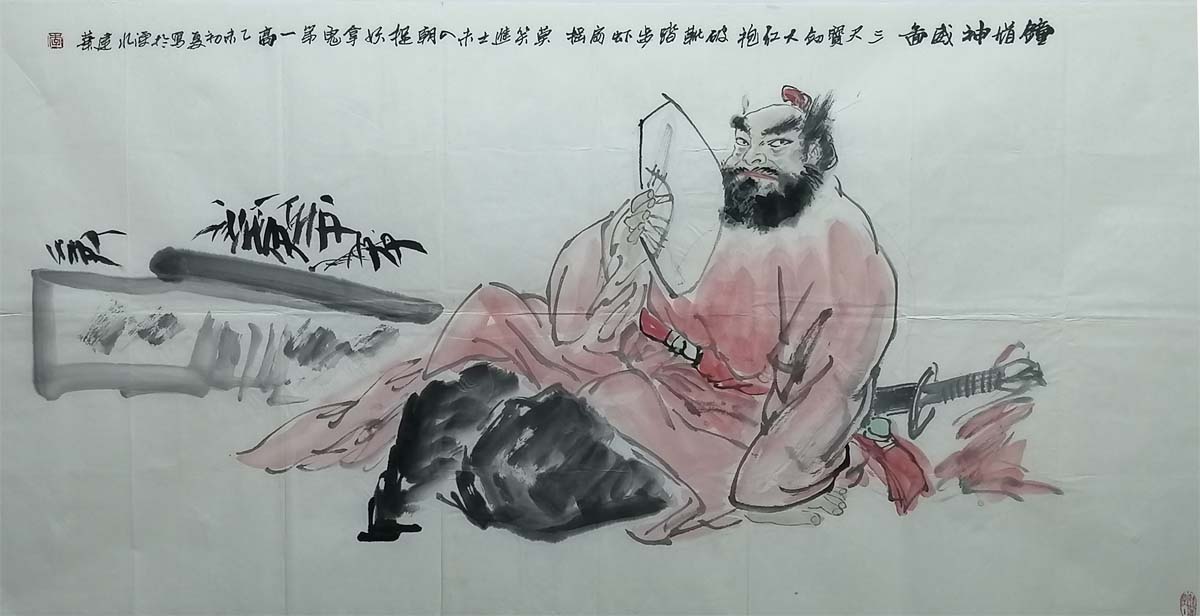 鐘馗神威 三尺寶劍大红袍破靴踏步扇摇莫笑進士未入朝捉妖拿鬼第一高乙未初夏寫於水建